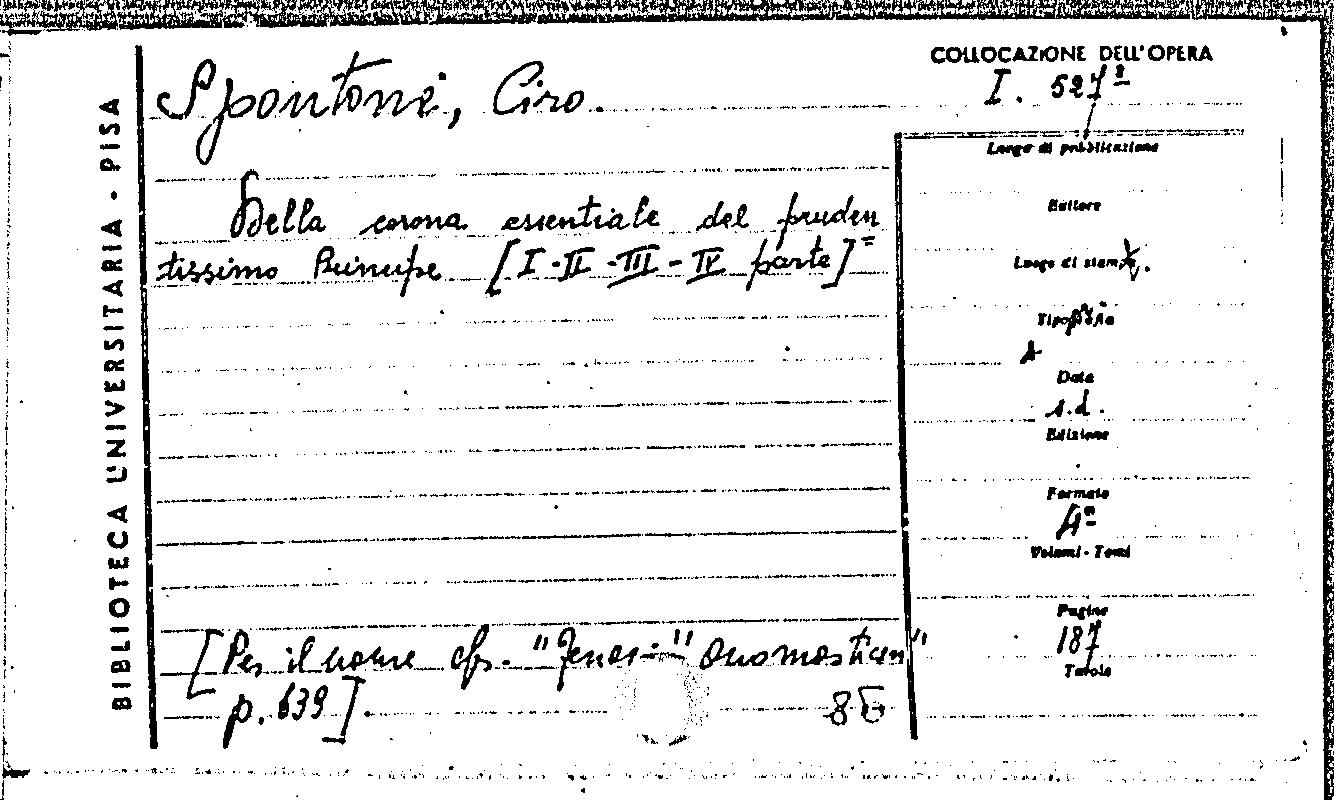 BIBLIOTECA UNIVERSITARIA - PISA
COLLOCAZIONE DELL'OPERA
I. 527²
Spontone, Ciro.
Della corona essentiale del pruden
tissimo Principe [I-II-III-IV parte]=
[Per il nome cfr. "Onomasticon"
p. 639].
Luogo di pubblicazione
Editore
Luogo di stampa
Tipografia
Data
s.d.
Edizione
Formato
4º
Volumi - Tomi
Pagine
187
Tavole